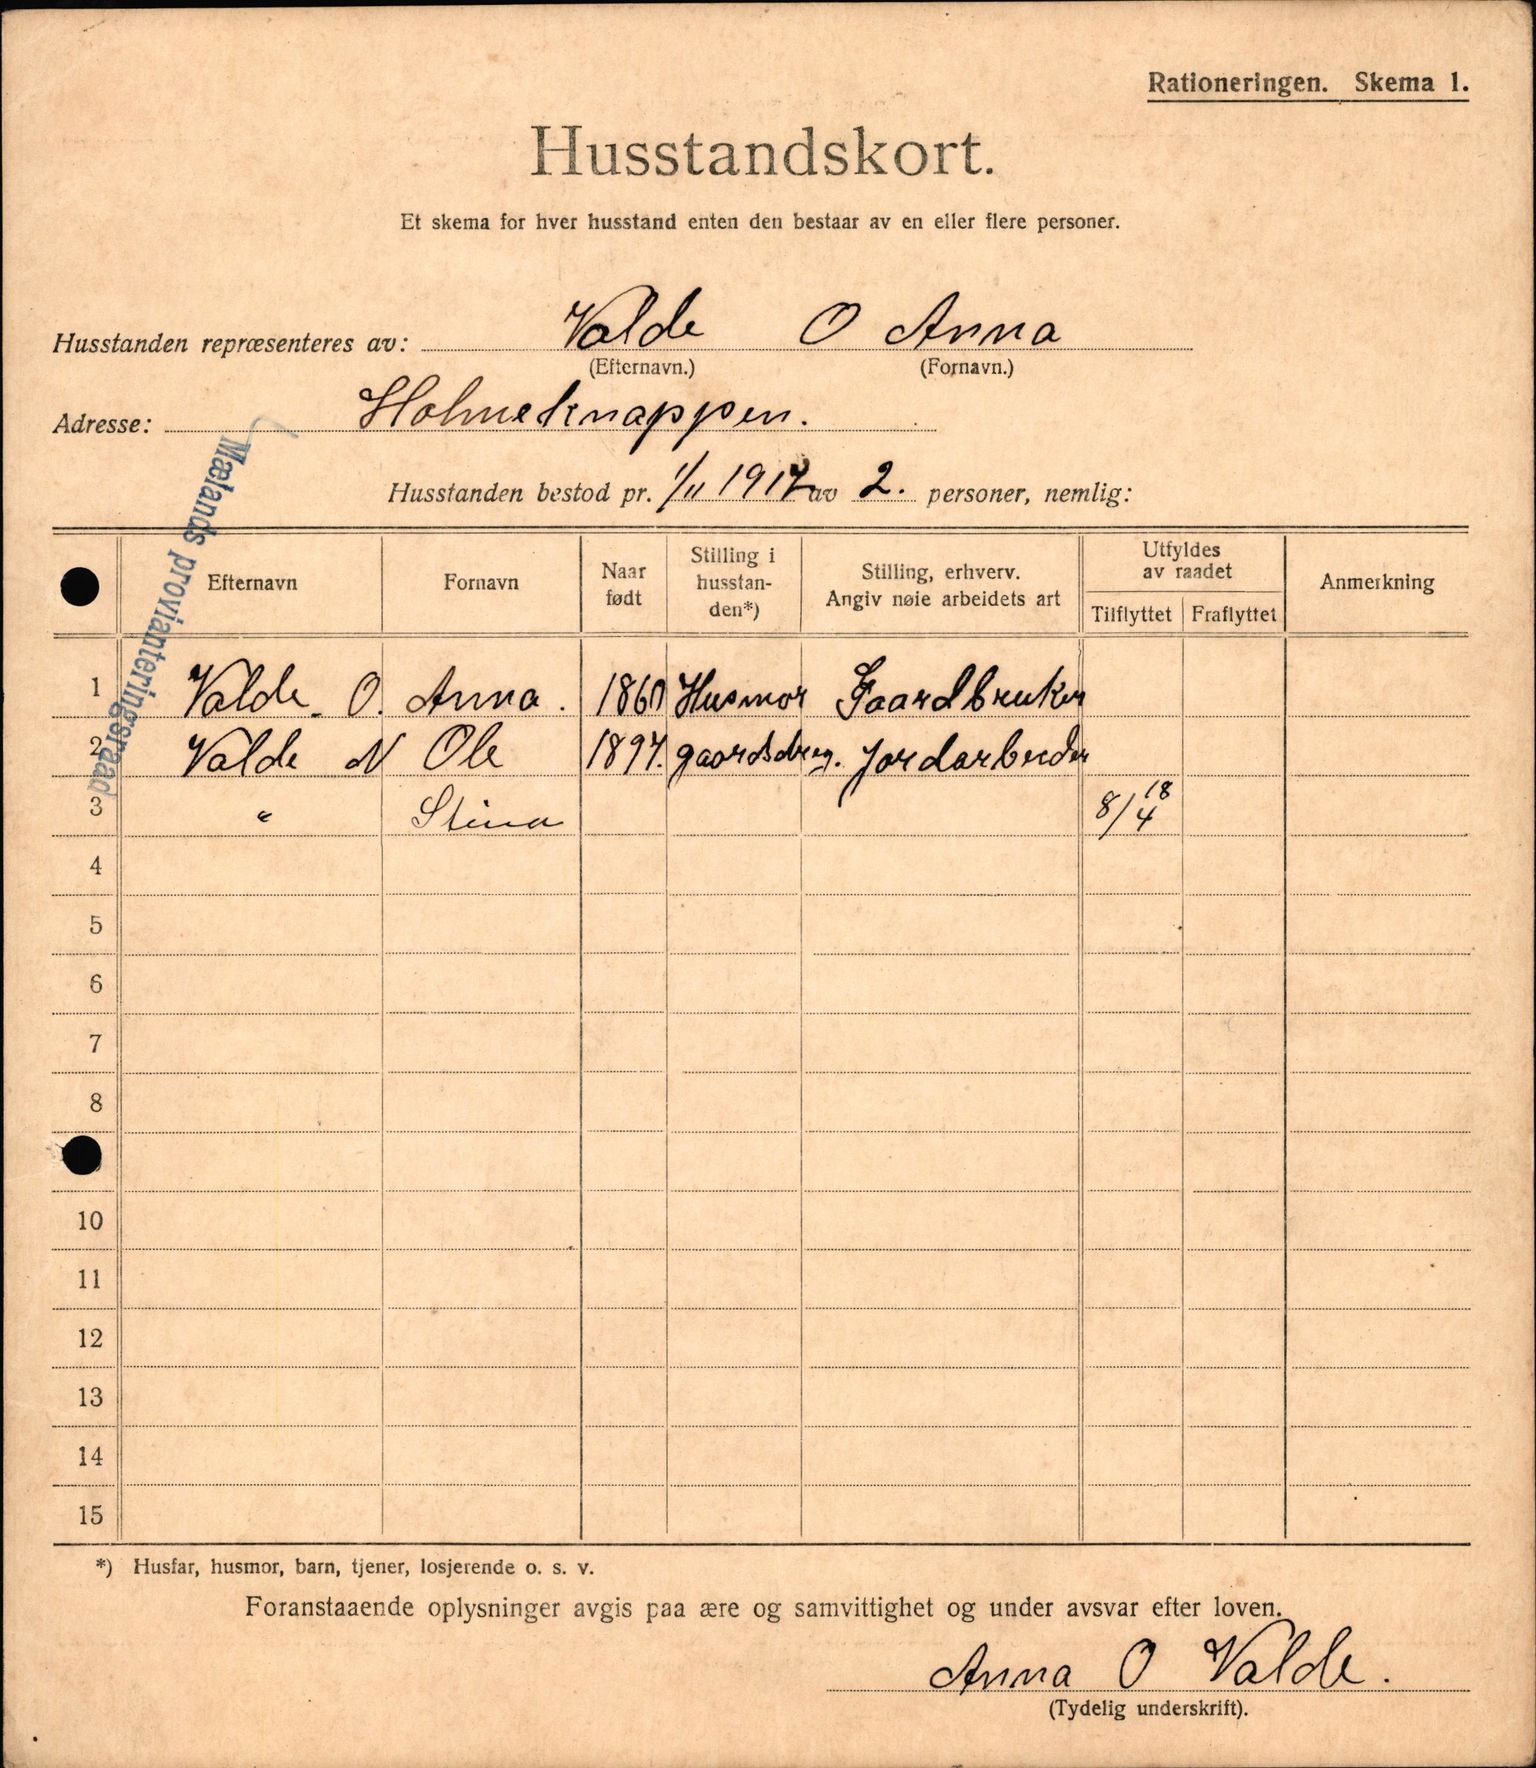 Rationeringen. Skema 1.
Husstandskort.
Et skema for hver husstand enten den bestaar av en eller flere personer.
Husstanden repræsenteres av: Valde O Anna
(Efternavn.) (Fornavn.)
Adresse: Holmeknappen.
Mælands provianteringsraad
Husstanden bestod pr. 1/11 1917 av 2. personer, nemlig:
Efternavn Fornavn Naar født Stilling i husstan-den*) Stilling, erhverv. Angiv nøie arbeidets art Utfyldes av raadet Tilflyttet Fraflyttet Anmerkning
1 Valde O. Anna. 1860 Husmor Gaardbruker
2 Valde N Ole 1897. gaardsdreng. Jordarbeider
3 " Stina 8/4 18
4
5
6
7
8
10
11
12
13
14
15
*) Husfar, husmor, barn, tjener, losjerende o. s. v.
Foranstaaende oplysninger avgis paa ære og samvittighet og under avsvar efter loven.
Anna O Valde.
(Tydelig underskrift).